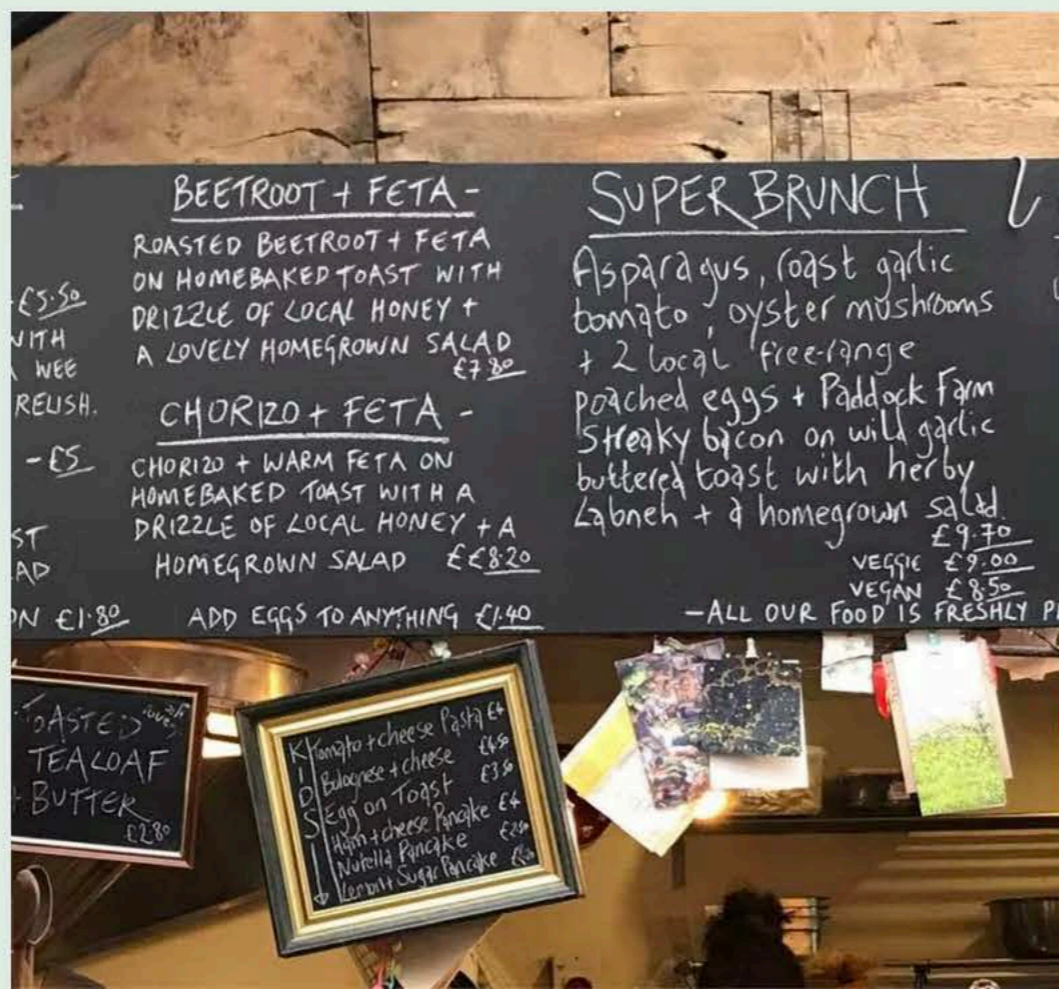 £5.50
WITH
WEE
RELISH.
- £5
ST
AD
ON £1.80
BEETROOT + FETA -
ROASTED BEETROOT + FETA
ON HOMEBAKED TOAST WITH
DRIZZLE OF LOCAL HONEY +
A LOVELY HOMEGROWN SALAD
£7.80
CHORIZO + FETA -
CHORIZO + WARM FETA ON
HOMEBAKED TOAST WITH A
DRIZZLE OF LOCAL HONEY + A
HOMEGROWN SALAD ££8.20
ADD EGGS TO ANYTHING £1.40
SUPER BRUNCH
Asparagus, roast garlic
tomato, oyster mushrooms
+ 2 local free-range
poached eggs + Paddock Farm
Streaky bacon on wild garlic
buttered toast with herby
Labneh + a homegrown salad.
£9.70
VEGGIE £9.00
VEGAN £8.50
- ALL OUR FOOD IS FRESHLY P
TOASTED
TEALOAF
+ BUTTER
£2.80
KIDS
Tomato + cheese Pasta £4
Bolognese + cheese £4.50
Egg on Toast £3.50
Ham + cheese Pancake £4
Nutella Pancake
Lemon + Sugar Pancake